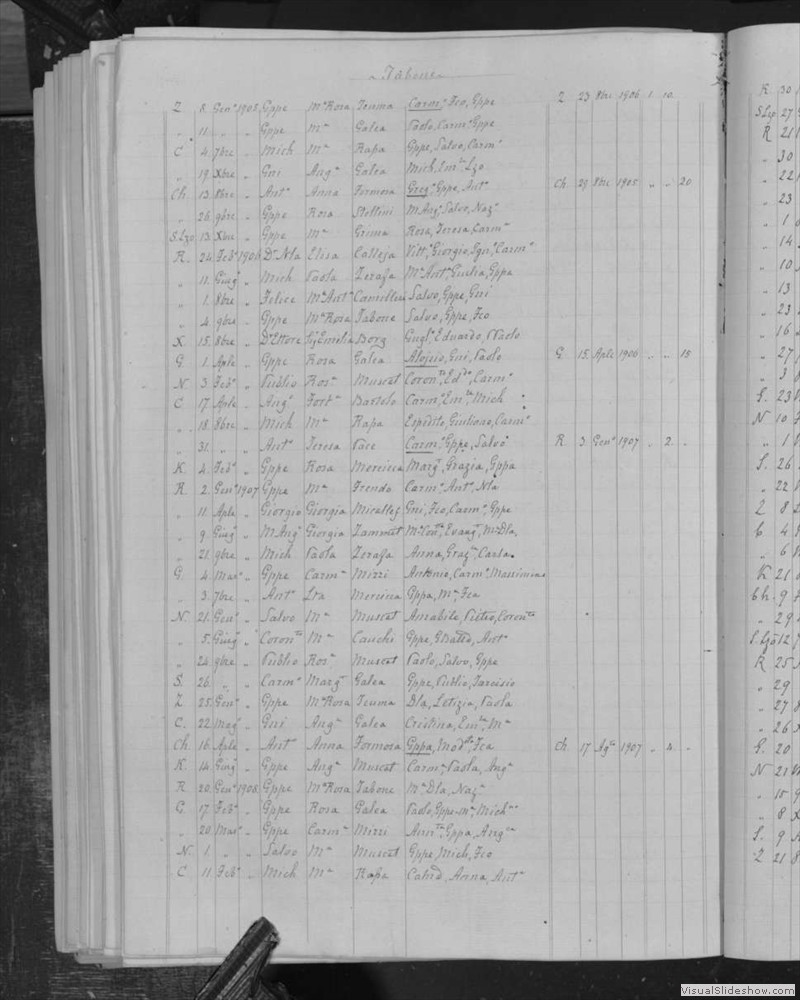 Tabone
Z 8. Genº 1905 Gppe Mª Rosa Teuma Carmª Fco, Gppe Z 23 8bre 1906 1. 10.
„ 11. „ „ Gppe Mª Galea Paolo, Carmª Gppe
C 4. 7bre „ Mich Mª Rapa Gppe, Salvo, Carmª
„ 19. Xbre „ Gni Angª Galea Mich, Emlª Lzo
Ch. 13. 8bre „ Antº Anna Formosa Gregº Gppe, Antº Ch. 1905 „ „ 20
„ 26. 9bre „ Gppe Rosa Stellini M. Angº Salvo, Nazº
S. Lzo 13. Xbre „ Gppe Mª Grima Rosa, Teresa, Carmª
R. 24. Febº 1906 Dr Nla Elisa Calleja Vittº Giorgio, Ignº, Carmº
„ 11. Giugº „ Mich Paola Zerafa Mª Antª Giulia, Gppa
„ 1. 8bre „ Felice Mª Antª Camilleri Salvo, Gppe, Gni
„ 4. 9bre „ Gppe Mª Rosa Tabone Salvo, Gppe, Fco
X 15. 8bre „ Dr Ettore Emilia Borg Guglº Eduardo, Paolo
G. 1. Aple „ Gppe Rosa Galea Aloisio, Gni, Paolo G. 15. Aple 1906 „ „ 15
N. 3. Febº „ Publio Rosª Muscat Coronto, Eddo, Carmº
C 17. Aple „ Angº Fortª Bartolo Carmº Emlª, Mich
„ 18. 8bre „ Mich Mª Rapa Espedito, Giuliano, Carmº
„ 31. „ „ Antº Teresa Pace Carmº Gppe, Salvo R. 3. Genº 1907 „ 2. „
K. 4. Febº „ Gppe Rosa Mercieca Margª Grazia, Gppa
R. 2. Genº 1907 Gppe Mª Trenda Carmª Antº, Nla
„ 11. Aple „ Giorgio Giorgia Micallef Gni, Fco, Carmº, Gppe
„ 9. Giugº „ M. Angº Giorgia Zammit Evangª, Mª Dla,
„ 21. 9bre „ Mich Paola Zerafa Anna, Grazª, Carla.
G. 4. Marº „ Gppe Carmª Mizzi Antonio, Carmº, Massimino
„ 3. 7bre „ Antº Lza Mercieca Gppa, Mª, Fca
N. 21. Genº „ Salvo Mª Muscat Amabile, Pietro, Coronto
„ 5. Giugº „ Coronto Mª Cauchi Gppe, G. Batta, Antº
„ 24. 9bre „ Publio Rosª Muscat Paolo, Salvo, Gppe
S. 26. „ „ Carmº Margª Galea Gppe, Publio, Tarcisio
Z. 25. Genº „ Gppe Mª Rosa Teuma Dla, Letizia, Paola
C. 22. Magº „ Gni Angª Galea Cristina, Emlª, Mª
Ch. 16. Aple „ Antº Anna Formosa Gppa, Modta, Fca Ch. 17 Agº 1907 „ 4. „
K. 14. Giugº „ Gppe Angª Muscat Carmª, Paola, Angª
R. 20. Genº 1908 Gppe Mª Rosa Tabone Mª Dla, Nazª
G. 17. Febº „ Gppe Rosa Galea Paolo, Gppe-Mª, Mich
„ 20. Marº „ Gppe Carmª Mizzi Gppa, Angca
N. 1. „ „ Salvo Mª Muscat Gppe, Mich, Fco
C 11. Febº „ Mich Mª Rapa Anna, Antª
R. 30
S. Lzo 27
R 21
„ 30
„ 22
„ 23
„ 1
„ 14
„ 10
„ 13
„ 23
„ 16
„ 27
„ 3
G. 23
N 10
„ 1
S. 26
„ 22
Z 8
C 4
„ 6
K 21
Ch. 9
„ 29
S. Lzo 12
R 25
„ 29
„ 27
„ 26
G. 20
N 21
„ 15
„ 8
S. 9
Z 21
VisualSlideshow.com